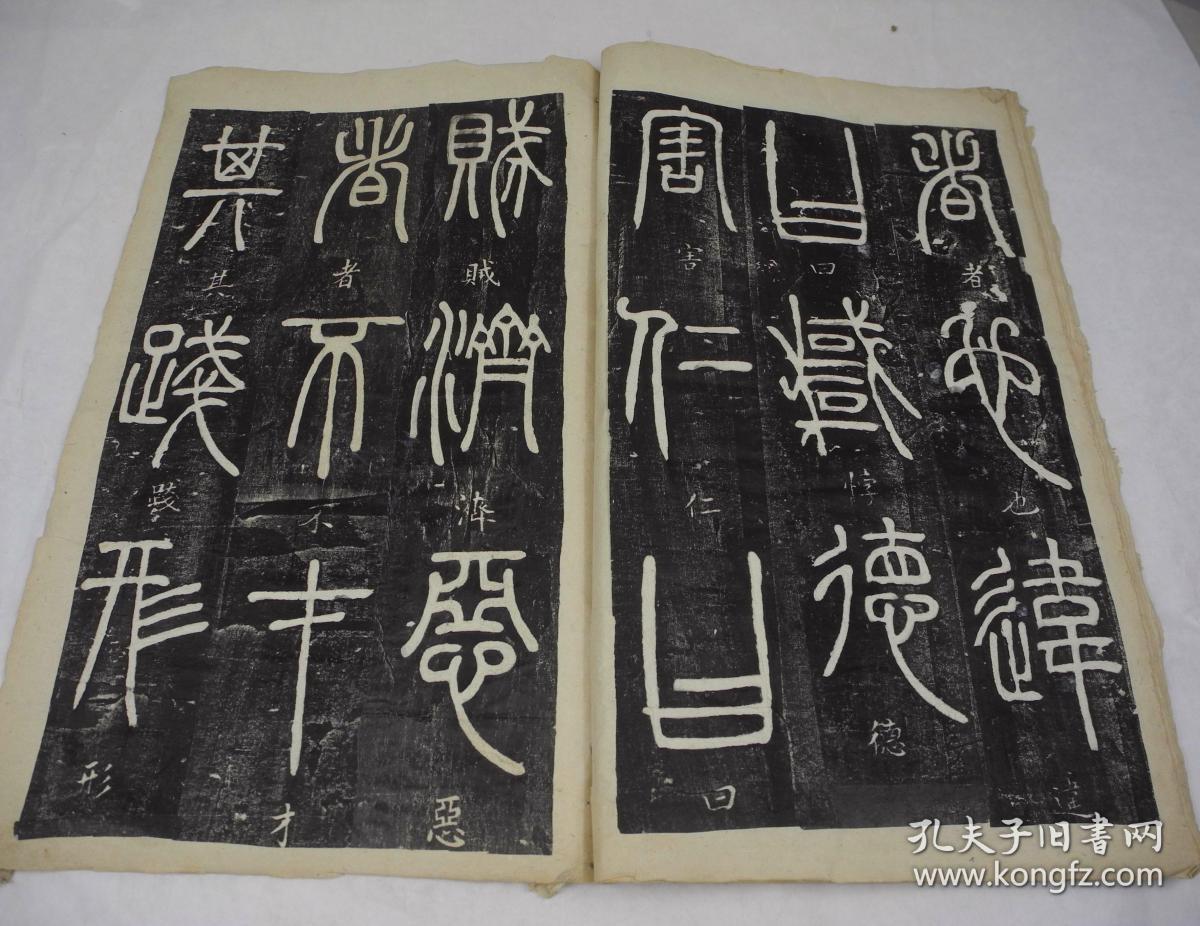 者者也也違違
曰曰悖悖德德
害害仁仁曰曰
賊賊濟濟惡惡
者者不不才才
其其踐踐形形
孔夫子旧书网
www.kongfz.com